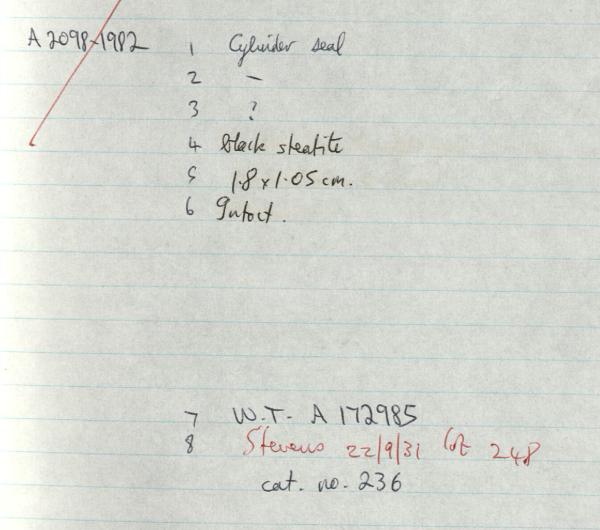 A 2098-1982 1 Cylinder seal
2 –
3 ?
4 black steatite
5 1.8 x 1.05 cm.
6 Intact.
7 W.T. A 172985
8 Stevens 22/9/31 lot 248
cat. no. 236